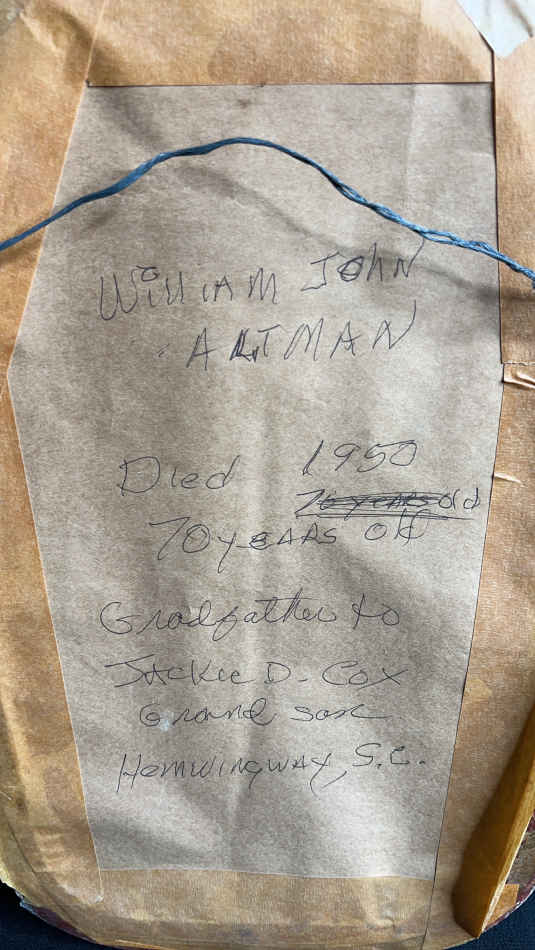 William John
Altman
Died 1950
70 years old
70 years old
Gradfather to
Jackie D. Cox
Grand son
Hemwingway, S.C.